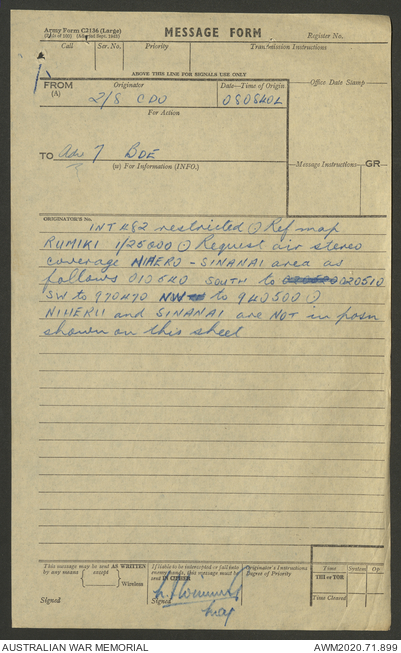 Army Form C2136 (Large)
MESSAGE FORM
Register No.
(Pads of 100) (Adapted Sept. 1942)
Call Ser. No. Priority Transmission Instructions
ABOVE THIS LINE FOR SIGNALS USE ONLY
FROM
(A)
Originator
2/8 CDO
Date—Time of Origin
080840L
Office Date Stamp
For Action
TO Adv 7 BDE
(w) For Information (INFO.)
Message Instructions GR
ORIGINATOR'S No.
INT 482 restricted ⊙ Ref map
RUMIKI 1/25000 ⊙ Request air stereo
coverage NIHERO - SINANAI area as
follows 010540 SOUTH to 020510
SW to 970470 to 940500 ⊙
NIHERU and SINANAI are NOT in posn
shown on this sheet
This message may be sent AS WRITTEN
by any means except Wireless
Signed
If liable to be intercepted or fall into
enemy hands, this message must be
sent IN CIPHER
Signed
Maj
Originator's Instructions
Degree of Priority
Time System Op.
THI or TOR
Time Cleared
AUSTRALIAN WAR MEMORIAL AWM2020.71.899